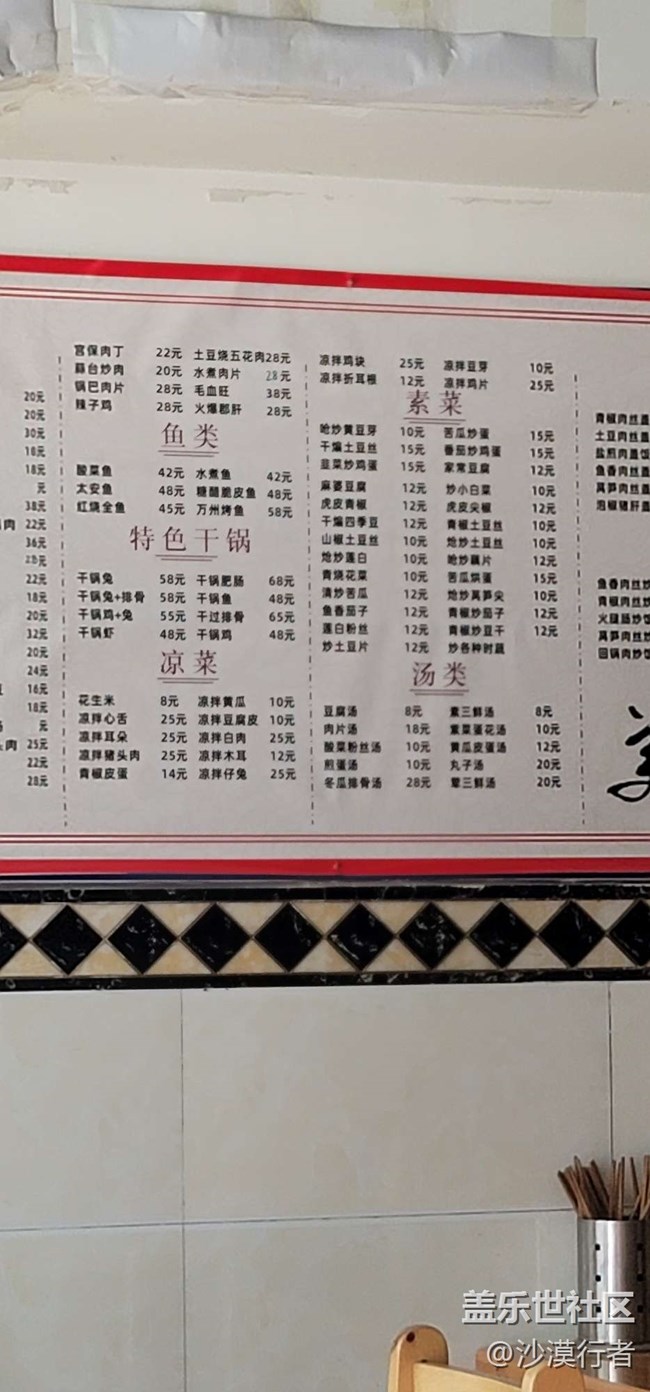 20元
20元
30元
18元
18元
元
38元
肉 22元
36元
28元
22元
18元
20元
32元
20元
24元
16元
18元
元
肉 25元
22元
28元
宫保肉丁 22元 土豆烧五花肉28元
蒜台炒肉 20元 水煮肉片 28元
锅巴肉片 28元 毛血旺 38元
辣子鸡 28元 火爆郡肝 28元
鱼类
酸菜鱼 42元 水煮鱼 42元
太安鱼 48元 糖醋脆皮鱼 48元
红烧全鱼 45元 万州烤鱼 58元
特色干锅
干锅兔 58元 干锅肥肠 68元
干锅兔+排骨 58元 干锅鱼 48元
干锅鸡+兔 55元 干过排骨 65元
干锅虾 48元 干锅鸡 48元
凉菜
花生米 8元 凉拌黄瓜 10元
凉拌心舌 25元 凉拌豆腐皮 10元
凉拌耳朵 25元 凉拌白肉 25元
凉拌猪头肉 25元 凉拌木耳 12元
青椒皮蛋 14元 凉拌仔兔 25元
凉拌鸡块 25元 凉拌豆芽 10元
凉拌折耳根 12元 凉拌鸡片 25元
素菜
呛炒黄豆芽 10元 苦瓜炒蛋 15元
干煸土豆丝 15元 番茄炒鸡蛋 15元
韭菜炒鸡蛋 15元 家常豆腐 12元
麻婆豆腐 12元 炒小白菜 10元
虎皮青椒 12元 虎皮尖椒 12元
干煸四季豆 12元 青椒土豆丝 10元
山椒土豆丝 10元 炝炒土豆丝 10元
炝炒莲白 10元 呛炒藕片 12元
青烧花菜 10元 苦瓜烘蛋 15元
清炒苦瓜 12元 炝炒莴笋尖 10元
鱼香茄子 12元 青椒炒茄子 12元
莲白粉丝 12元 青椒炒豆干 12元
炒土豆片 12元 炒各种时蔬
汤类
豆腐汤 8元 素三鲜汤 8元
肉片汤 18元 紫菜蛋花汤 10元
酸菜粉丝汤 10元 黄瓜皮蛋汤 12元
煎蛋汤 10元 丸子汤 20元
冬瓜排骨汤 28元 荤三鲜汤 20元
青椒肉丝盖
土豆肉丝盖
盐煎肉盖饭
鱼香肉丝盖
莴笋肉丝盖
泡椒猪肝盖
鱼香肉丝炒
青椒肉丝炒
火腿肠炒饭
莴笋肉丝炒
回锅肉炒饭
盖乐世社区
@沙漠行者